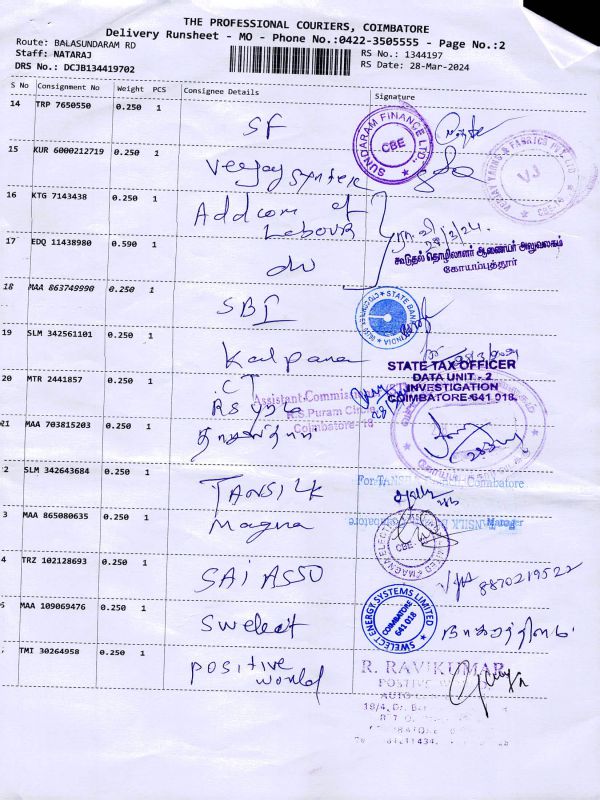 THE PROFESSIONAL COURIERS, COIMBATORE
Delivery Runsheet - MO - Phone No.:0422-3505555 - Page No.:2
Route: BALASUNDARAM RD
Staff: NATARAJ
DRS No.: DCJB134419702
RS No.: 1344197
RS Date: 28-Mar-2024
S No Consignment No Weight PCS Consignee Details Signature
14 TRP 7650550 0.250 1 SF
SUNDARAM FINANCE LTD.,
CBE
15 KUR 6000212719 0.250 1 Veejay Syntex
VJ
16 KTG 7143438 0.250 1 Addcom of
Labour
28/3/24.
17 EDQ 11438980 0.590 1 do
கூடுதல் தொழிலாளர் ஆணையர் அலுவலகம்
கோயம்புத்தூர்
18 MAA 863749990 0.250 1 SBI
STATE BANK
INDIA
19 SLM 342561101 0.250 1 Kalpana
STATE TAX OFFICER
DATA UNIT - 2
INVESTIGATION
COIMBATORE-641 018.
20 MTR 2441857 0.250 1 CT
RS
Assistant Commissioner
R.S.Puram
Coimbatore
21 MAA 703815203 0.250 1
2 SLM 342643684 0.250 1 TANSILK
For TANSILK
Coimbatore
3 MAA 865080635 0.250 1 Magna
CBE
4 TRZ 102128693 0.250 1 SAI ASSO
8870219522
5 MAA 109069476 0.250 1 Swelect
SWELECT ENERGY SYSTEMS LIMITED
COIMBATORE
641 018
TMI 30264958 0.250 1 positive
world
R. RAVIKUMAR